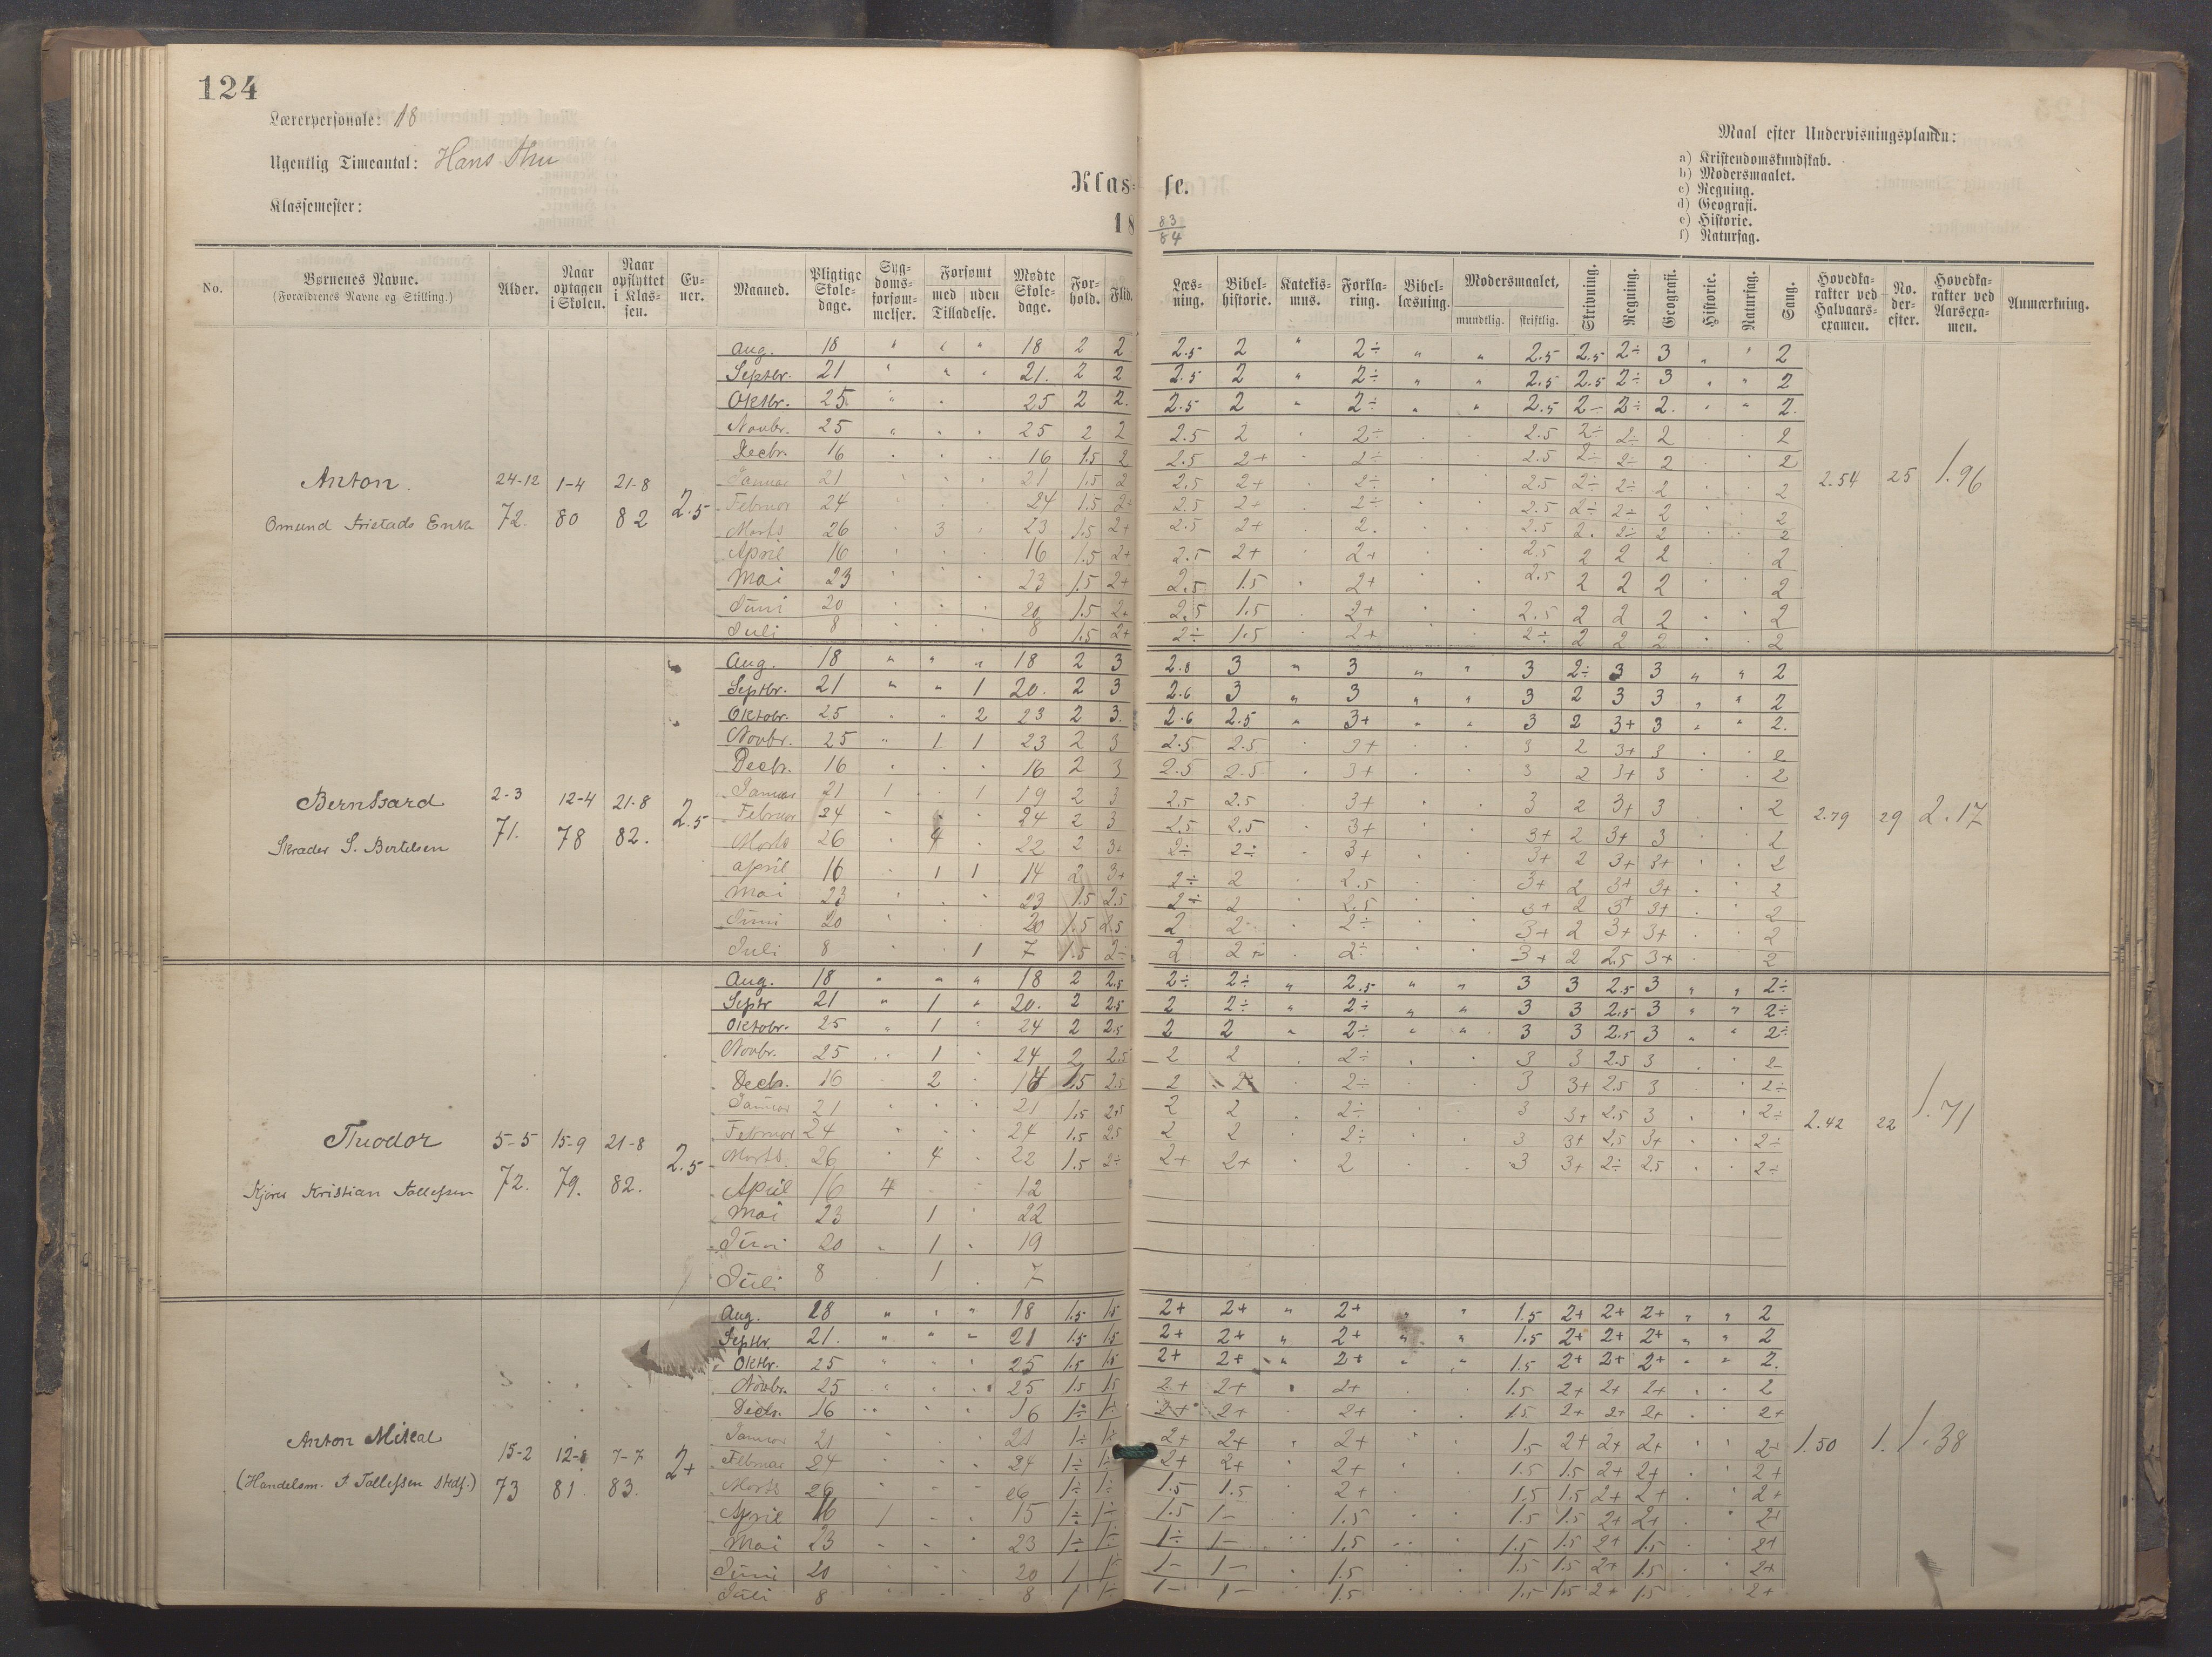 124
Lærerpersonale: 18
Ugentlig Timeantal: Hans Thu
Klassemester:
Klas- se.
18 83/84
Maal efter Undervisningsplanen:
a) Kristendomskundskab.
b) Modersmaalet.
c) Regning.
d) Geografi.
e) Historie.
f) Naturfag.
No. Børnenes Navne. (Forældrenes Navne og Stilling.) Alder. Naar optagen i Skolen. Naar opflyttet i Klassen. Evner. Maaned. Pligtige Skoledage. Sygdomsforsømmelser. Forsømt med uden Tilladelse. Mødte Skoledage. Forhold. Flid. Læsning. Bibelhistorie. Katekismus. Forklaring. Bibellæsning. Modersmaalet, mundtlig. skriftlig. Skrivning. Regning. Geografi. Historie. Naturfag. Sang. Hovedkarakter ved Halvaarsexamen. No. derefter. Hovedkarakter ved Aarsexamen. Anmærkning.
Aug. 18 " " " 18 2 2 2.5 2 " 2÷ " " 2.5 2.5 2÷ 3 " " 2
Septbr. 21 " " " 21. 2 2 2.5 2 " 2÷ " " 2.5 2.5 2÷ 3 " " 2
Oktbr. 25 " " 25 2 2. 2.5 2 " 2÷ " " 2.5 2- 2÷ 2. " " 2.
Novbr. 25 " " " 25 2 2 2.5 2 2÷ 2.5 2÷ 2÷ 2 2
Decbr. 16 16 1.5 2 2.5 2+ 2÷ 2.5 2÷ 2÷ 2 2
Januar 21 21 1.5 2 2.5 2+ 2÷ 2.5 2÷ 2÷ 2 2
Anton 24-12 72. 1-4 80 21-8 82 2.5 2.54 25 1.96
Februar 24 24 1.5 2+ 2.5 2+ 2÷ 2.5 2÷ 2÷ 2 2
Omund Tristads Enke
Marts 26 3 23 1.5 2+ 2.5 2+ 2. 2.5 2. 2÷ 2 2
April 16 16 1.5 2+ 2.5 2+ 2+ 2.5 2 2 2 2
Mai 23 23 1.5 2+ 2.5 1.5 2+ 2.5 2 2 2 2
Juni 20 20 1.5 2+ 2.5 1.5 2+ 2.5 2 2 2 2
Juli 8 8 1.5 2+ 2÷ 1.5 2+ 2÷ 2 2 2 2
Aug. 18 " " " 18 2 3 2.8 3 " 3 " " 3 2÷ 3 3 " " 2
Septbr. 21 " " 1 20. 2 3 2.6 3 " 3 " " 3 2 3 3 " " 2
Oktobr. 25 " " 2 23 2 3. 2.6 2.5 " 3+ " " 3 2 3+ 3 " " 2.
Novbr. 25 " 1 1 23 2 3 2.5 2.5 3+ 3 2 3+ 3 2
Decbr. 16 16 2 3 2.5 2.5 3+ 3 2 3+ 3 2
Januar 21 1 1 19 2 3 2.5 2.5 3+ 3 2 3+ 3 2
Bernhard 2-3 71. 12-4 78 21-8 82. 2.5 2.79 29 2.17
Februar 24 24 2 3 2.5 2.5 3+ 3+ 2 3+ 3 2
Skræder S. Bertelsen
Marts 26 4 22 2 3+ 2÷ 2÷ 3+ 3+ 2 3+ 3+ 2
April 16 1 1 14 2 3+ 2÷ 2 2.5 3+ 2 3+ 3+ 2
Mai 23 23 1.5 2.5 2÷ 2 2.5 3+ 2 3+ 3+ 2
Juni 20 20 1.5 2.5 2 2 2÷ 3+ 2 3+ 3+ 2
Juli 8 1 7 1.5 2÷ 2 2+ 2÷ 3+ 2 2.5 3+ 2
Aug. 18 " " " 18 2 2.5 2÷ 2÷ " 2.5 " " 3 3 2.5 3 " " 2÷
Septr 21 " 1 " 20. 2 2.5 2 2÷ " 2÷ " " 3 3 2.5 3 " " 2÷
Oktobr. 25 " 1 " 24 2 2.5 2 2 " 2÷ " " 3 3 2.5 3 " " 2÷
Novbr. 25 1 24 2 2.5 2 2 2÷ 3 3 2.5 3 2-
Decbr. 16 2 14 1.5 2.5 2 2 2÷ 3 3+ 2.5 3 2÷
Januar 21 21 1.5 2.5 2 2 2÷ 3 3+ 2.5 3 2÷
Februar 24 24 1.5 2.5 2 2 2÷ 3 3+ 2.5 3+ 2÷
Theodor 5-5 72. 15-9 79. 21-8 82. 2.5 2.42 22 1.71
Marts. 26 4 22 1.5 2÷ 2+ 2+ 2 3 3+ 2÷ 2.5 2÷
Kjører Kristian Tollefsen
April 16 4 12
Mai 23 1 22
Juni 20 1 19
Juli 8 1 7
Aug. 18 " " " 18 1.5 1.5 2+ 2+ " 2+ " " 1.5 2+ 2+ 2+ " " 2
Septbr. 21. " " " 21 1.5 1.5 2+ 2+ " 2+ " " 1.5 2+ 2+ 2+ " " 2
Oktbr. 25 " " " 25 1.5 1.5 2+ 2+ " 2+ " " 1.5 2+ 2+ 2+ " " 2.
Novbr. 25 25 1.5 1.5 2+ 2+ 2+ 1.5 2+ 2+ 2+ 2
Decbr. 16 16 1÷ 1÷ 2+ 2+ 2+ 1.5 2+ 2+ 2+ 2+
Januar 21 21 1÷ 1÷ 2+ 2+ 2+ 1.5 2+ 2+ 2+ 2+
Anton Mikal 15-2 73 81. 7-7 83. 2+ 1.50 1. 1.38
Februar 24 24 1÷ 1÷ 2+ 2+ 2+ 1.5 1.5 2+ 2+ 2+
(Handelsm. T. Tollefsen Stedf.)
Marts 26 26 1÷ 1÷ 1.5 1.5 2+ 1.5 1.5 2+ 2+ 2+
April 16 1 15 1÷ 1÷ 1.5 1- 1.5 1.5 1.5 2+ 2+ 2+
Mai 23 23 1÷ 1÷ 1÷ 1- 1.5 1.5 1.5 2+ 1.5 2+
Juni 20 20 1 1÷ 1- 1- 1.5 1.5 1.5 2+ 1.5 2+
Juli 8 8 1 1- 1- 1- 1.5 1.5 1.5 2+ 1.5 2+